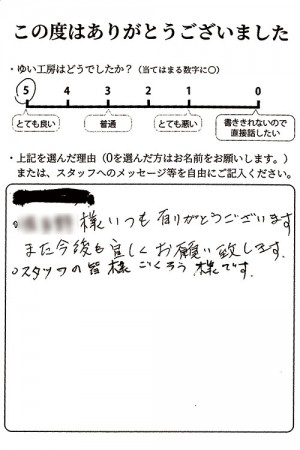 この度はありがとうございました
・ゆい工房はどうでしたか?(当てはまる数字に○)
5 4 3 2 1 0
とても良い 普通 とても悪い 書ききれないので直接話したい
・上記を選んだ理由(0を選んだ方はお名前をお願いします。)
または、スタッフへのメッセージ等を自由にご記入ください。
○ 様いつも有りがとうございます
また今後も宜しくお願い致します.
○スタッフの皆様ごくろう様です.